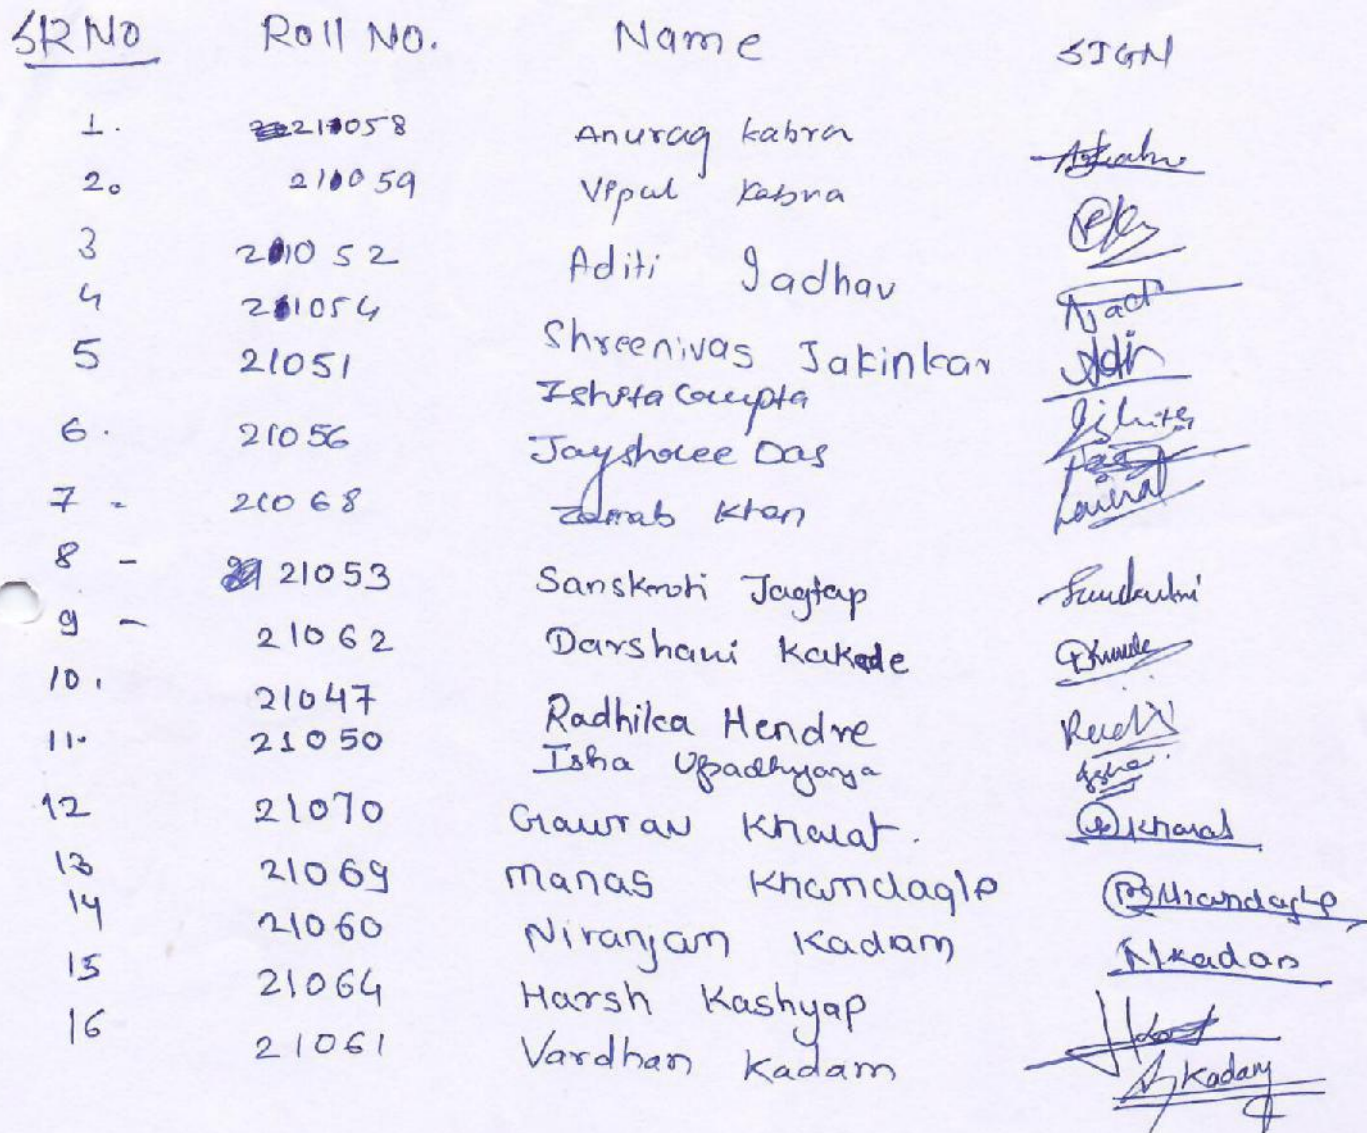 SR NO Roll NO. Name SIGN
1. 21058 Anurag Kabra
2. 21059 Vipul Kabra
3 21052 Aditi Jadhav
4 21054 Shreenivas Jakinkar
5 21051 Ishita Gupta Ishita
6. 21056 Jayshree Das
7 - 21068 Zainab Khan Zainab
8 - 21053 Sanskruti Jagtap Sanskruti
9 - 21062 Darshani Kakade
10. 21047 Radhika Hendre
11. 21050 Isha Upadhyaya Isha
12 21070 Gaurav Kharat. GKharat
13 21069 Manas Khandagle MKhandagle
14 21060 Niranjan Kadam NKadam
15 21064 Harsh Kashyap
16 21061 Vardhan Kadam VKadam